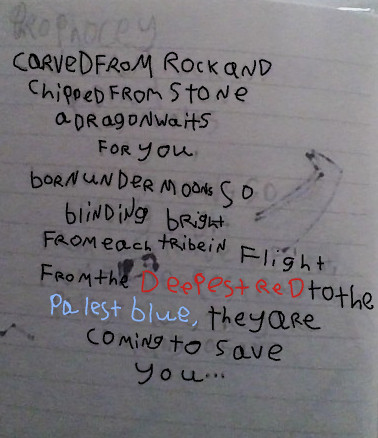 Prophorey
CARVED FROM ROCK AND
CHIPPED FROM STONE
A DRAGON WAITS
FOR YOU
BORN UNDER MOONS SO
blinding bright
FROM each tribe in Flight
FROM the DEEPEST RED to the
Palest blue, they are
COMING to save
you...